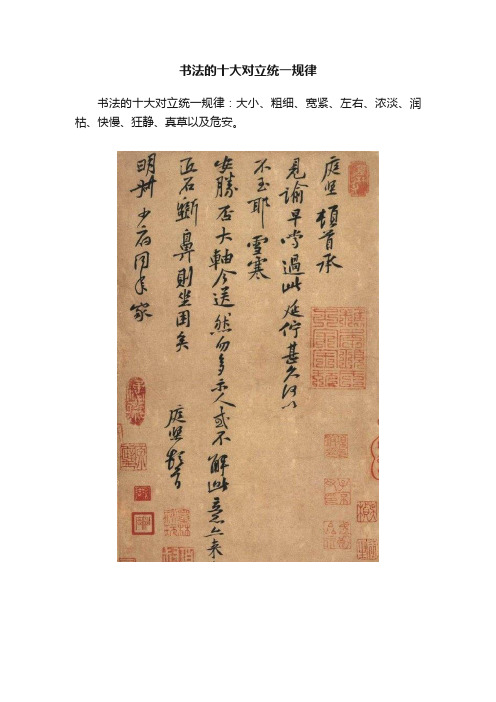 书法的十大对立统一规律
书法的十大对立统一规律：大小、粗细、宽紧、左右、浓淡、润
枯、快慢、狂静、真草以及危安。
庭坚顿首承
见谕早尝过此延伫甚久何以
不至耶雪寒
安胜否大軸今送然勿多示人或不解此意亦来
匠石斵鼻則坐困矣
庭坚顿首
明叔少府同年家